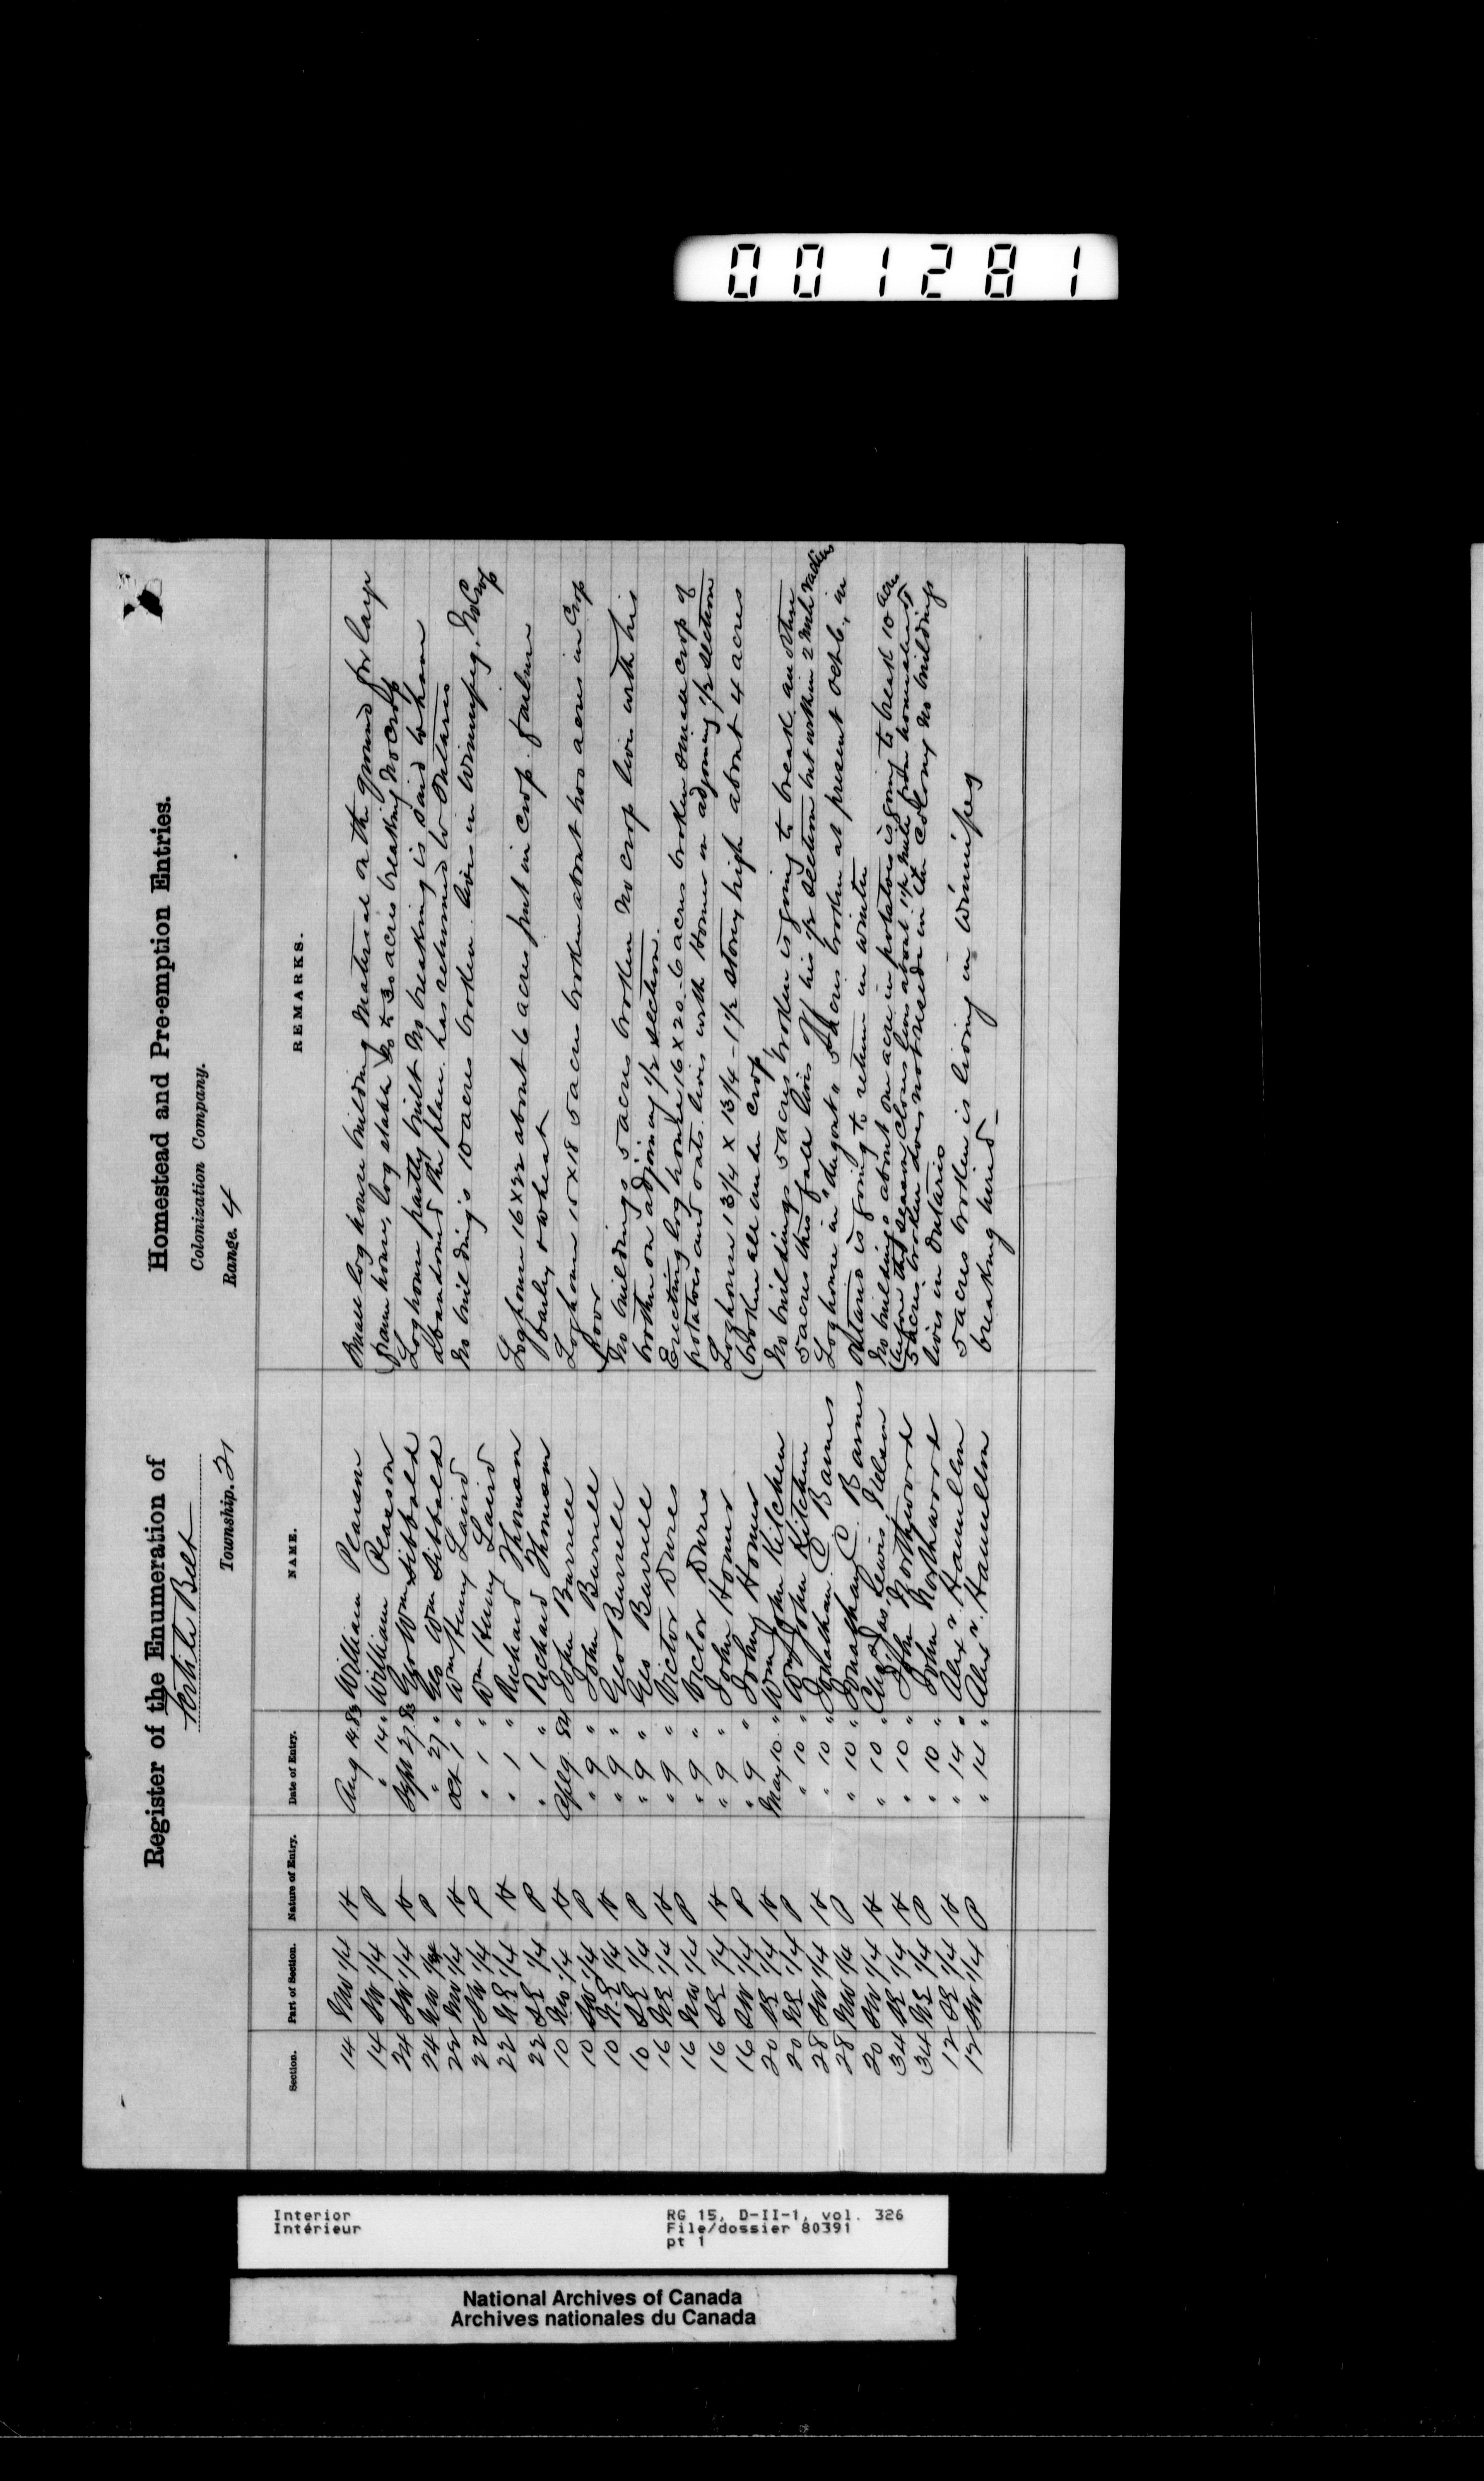 001281
Register of the Enumeration of Homestead and Pre-emption Entries.
Fertile Belt Colonization Company.
Township. 21 Range. 4
Section. Part of Section. Nature of Entry. Date of Entry. NAME. REMARKS.
14 NW 1/4 H Aug 14 83 William Pearson Small log house building Material on the ground for large
14 SW 1/4 P " 14 " William Pearson frame house, log stable 30 acres breaking No crop
24 SW 1/4 H Sept 27 83 Geo Wm Sibbald Log house partly built No breaking is said to have
24 NW 1/4 P " 27 " Geo Wm Sibbald abandoned the place. has returned to Ontario
22 NW 1/4 H Oct 1 " Wm Henry Laird No building's 10 acres broken. lives in Winnipeg. No Crop
22 SW 1/4 P " 1 " Wm Henry Laird
22 NE 1/4 H " 1 " Richard Thomson Log house 16 x 22 about 6 acres put in crop. failure
22 SE 1/4 P " 1 " Richard Thomson barley & wheat
10 NW 1/4 H Apl 9. 84 John Burrell Log house 15 x 18 5 acres broken about two acres in Crop
10 SW 1/4 P " 9 " John Burrell poor
10 N.E 1/4 H " 9 " Geo Burrell No buildings 5 acres broken No crop lives with his
10 SE 1/4 P " 9 " Geo Burrell brother on adjoining 1/2 section.
16 NE 1/4 H " 9 " Victor Dures Erecting log house 16 x 20 - 6 acres broken small crop of
16 NW 1/4 P " 9 " Victor Dures potatoes and oats. lives with Homer on adjoining 1/2 section
16 SE 1/4 H " 9 " John Homer Log house 13 1/4 x 13 1/4 - 1 1/2 storey high about 4 acres
16 SW 1/4 P " 9 " John Homer broken all under crop
20 SE 1/4 H May 10. " Wm John Kitchen No buildings 5 acres broken is going to break another
20 NE 1/4 P " 10 " Wm John Kitchen 5 acres this fall lives off his 1/2 section but within 2 mile radius
28 SW 1/4 H " 10 " Jonathan C Barnes Log house in "dugout" 5 acres broken at present Oct 6, in
28 NW 1/4 P " 10 " Jonathan C. Barnes Ontario is going to return in winter
20 SW 1/4 H " 10 " Lewis No buildings about one acre in potatoes is going to break 10 acres
before this season closes lives about 1 1/2 mile from homestead
34 SE 1/4 H " 10 " John Northwood 5 acres broken does not reside in the Colony No buildings
34 NE 1/4 P " 10 " John Northwood lives in Ontario
12 SE 1/4 H " 14 " Alexr. Hamilton 5 acres broken is living in Winnipeg
12 SW 1/4 P " 14 " Alexr. Hamilton breaking hired -
Interior
Intérieur
RG 15, D-II-1, vol. 326
File/dossier 80391
pt 1
National Archives of Canada
Archives nationales du Canada